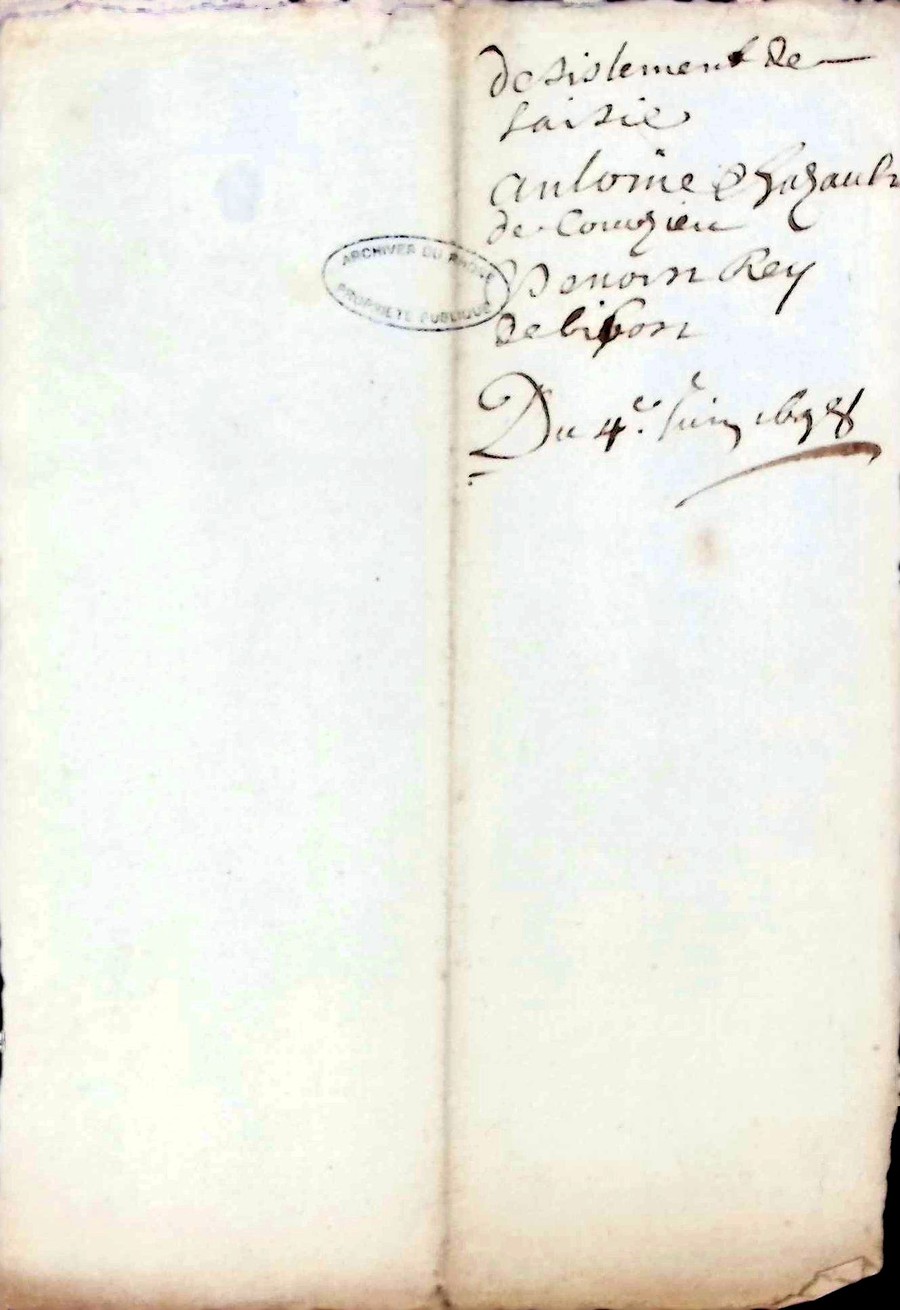 desistement de
saisie
antoine Chazault
de Couzieu
ARCHIVES DU RHÔNE
PROPRIÉTÉ PUBLIQUE
Benoin Rey
de
Du 4e. Juin 1698